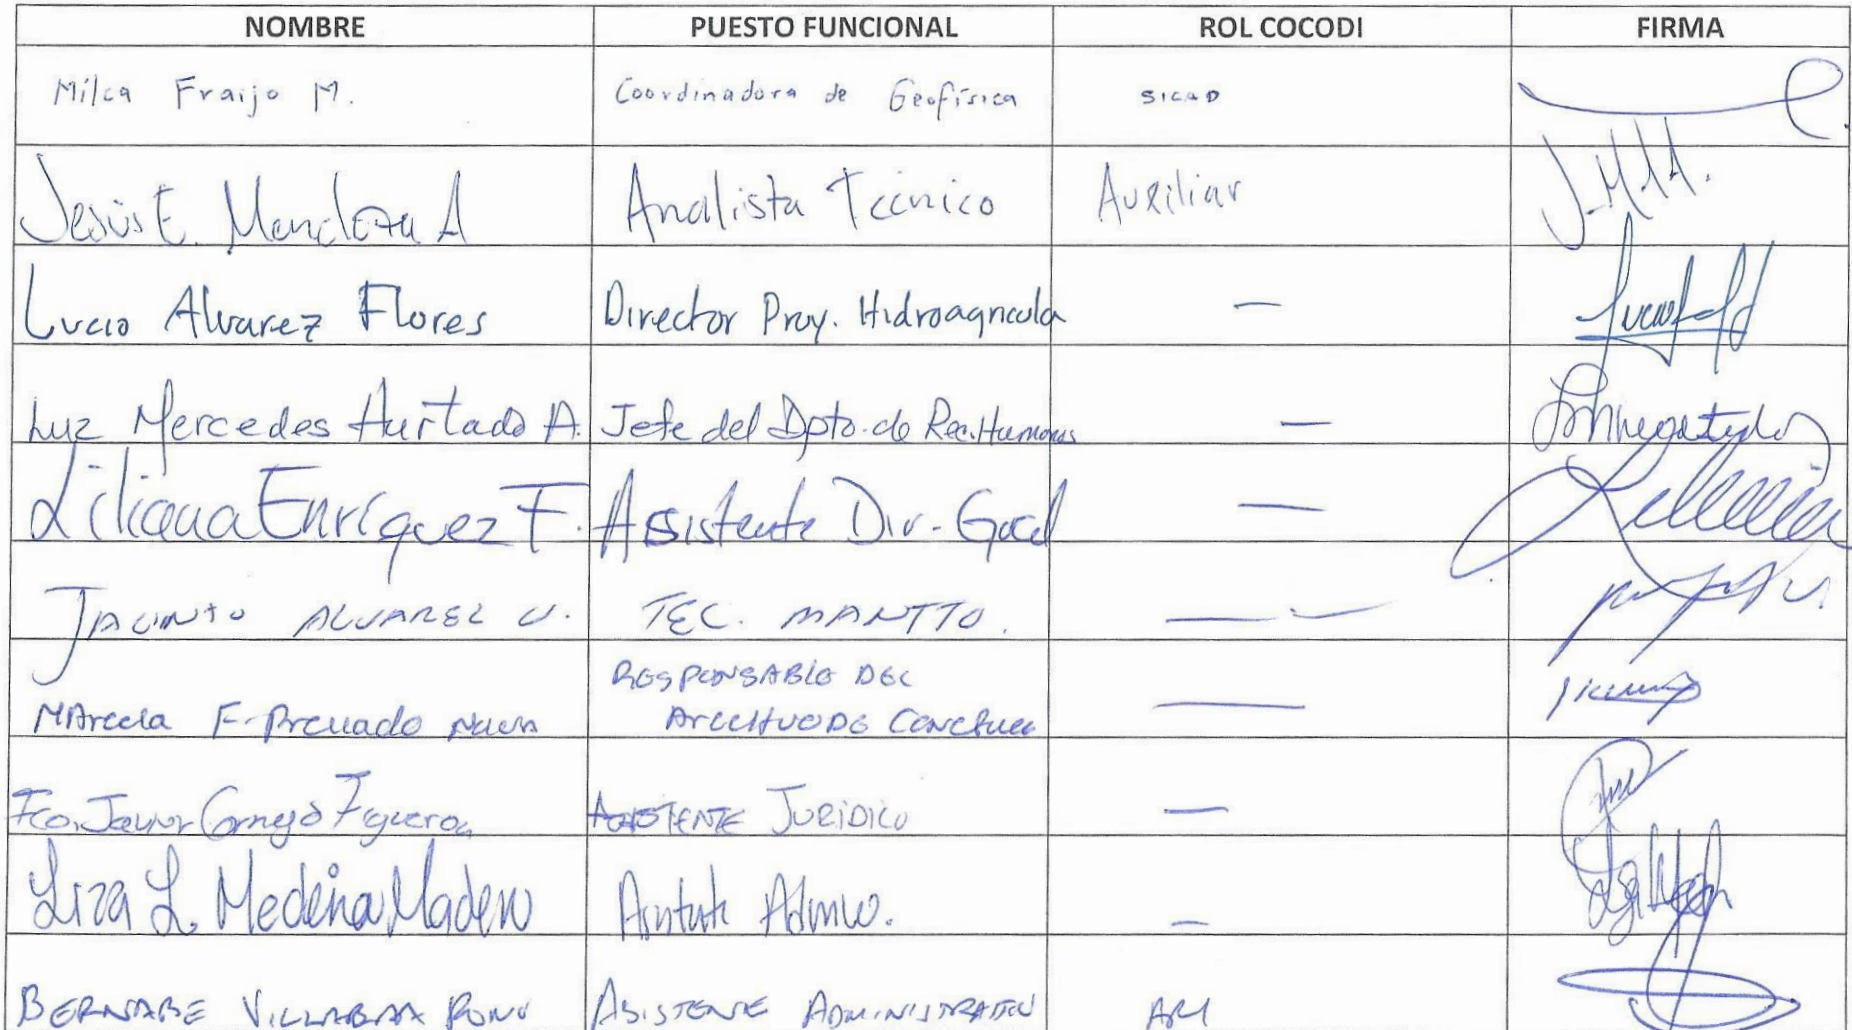 NOMBRE PUESTO FUNCIONAL ROL COCODI FIRMA
Milca Fraijo M. Coordinadora de Geofísica SICAD
Jesús E. Mendoza A Analista Técnico Auxiliar J.M.A.
Lucio Alvarez Flores Director Proy. Hidroagricola —
Luz Mercedes Hurtado A. Jefe del Dpto. de Rec. Humanos —
Liliana Enríquez F. Assistente Dir. Gral —
JACINTO ALVAREZ V. TEC. MANTTO. —
RESPONSABLE DEL
Marcela F. Preciado ARCHIVO DE —
Fco. Javier Cornejo Figueroa ASISTENTE JURIDICO —
Liza L. Medina Madero —
BERNABE ASISTENTE ADMINISTRATIVO